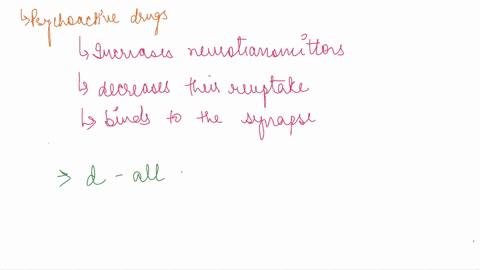 ↳Psychoactive drugs
↳Increases neurotransmittors
↳decreases their reuptake
↳binds to the synapse
> d - all